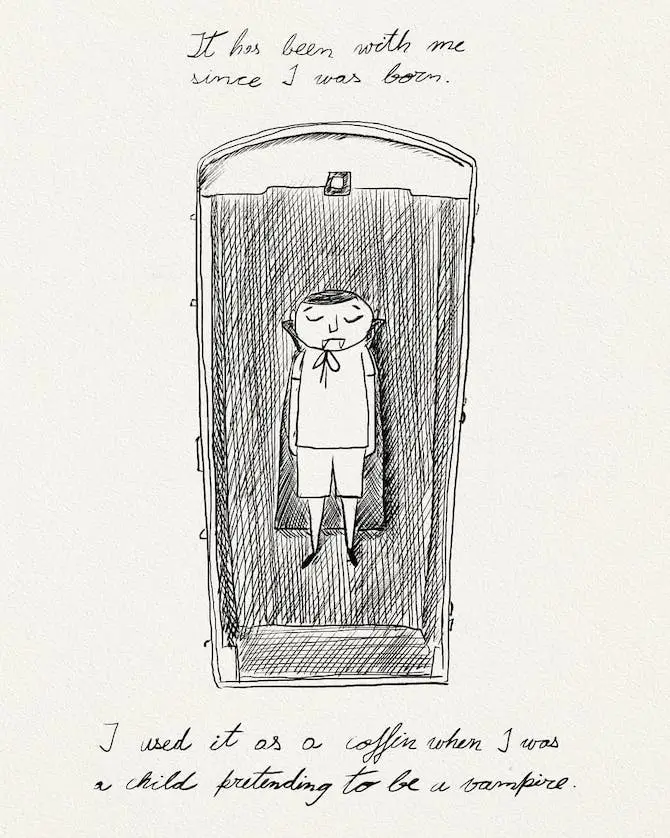 It has been with me
since I was born.
I used it as a coffin when I was
a child pretending to be a vampire.